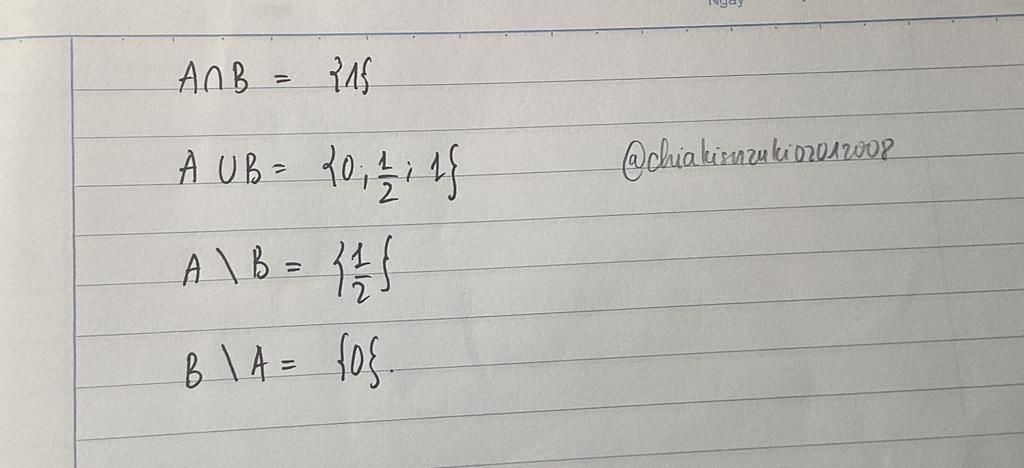 Ngày
A∩B = {1}
A∪B = {0; 1/2; 1} @chiakisuzuki02012008
A \ B = {1/2}
B \ A = {0}.